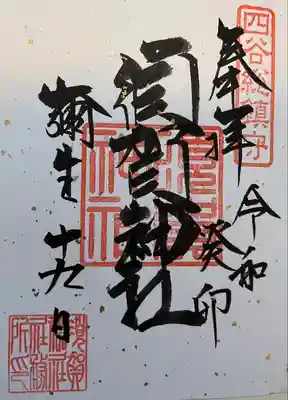 四谷総鎮守
奉拝
令和
癸卯
須賀神社
須賀
神社
彌生十九日
須賀
神社
社務
所印